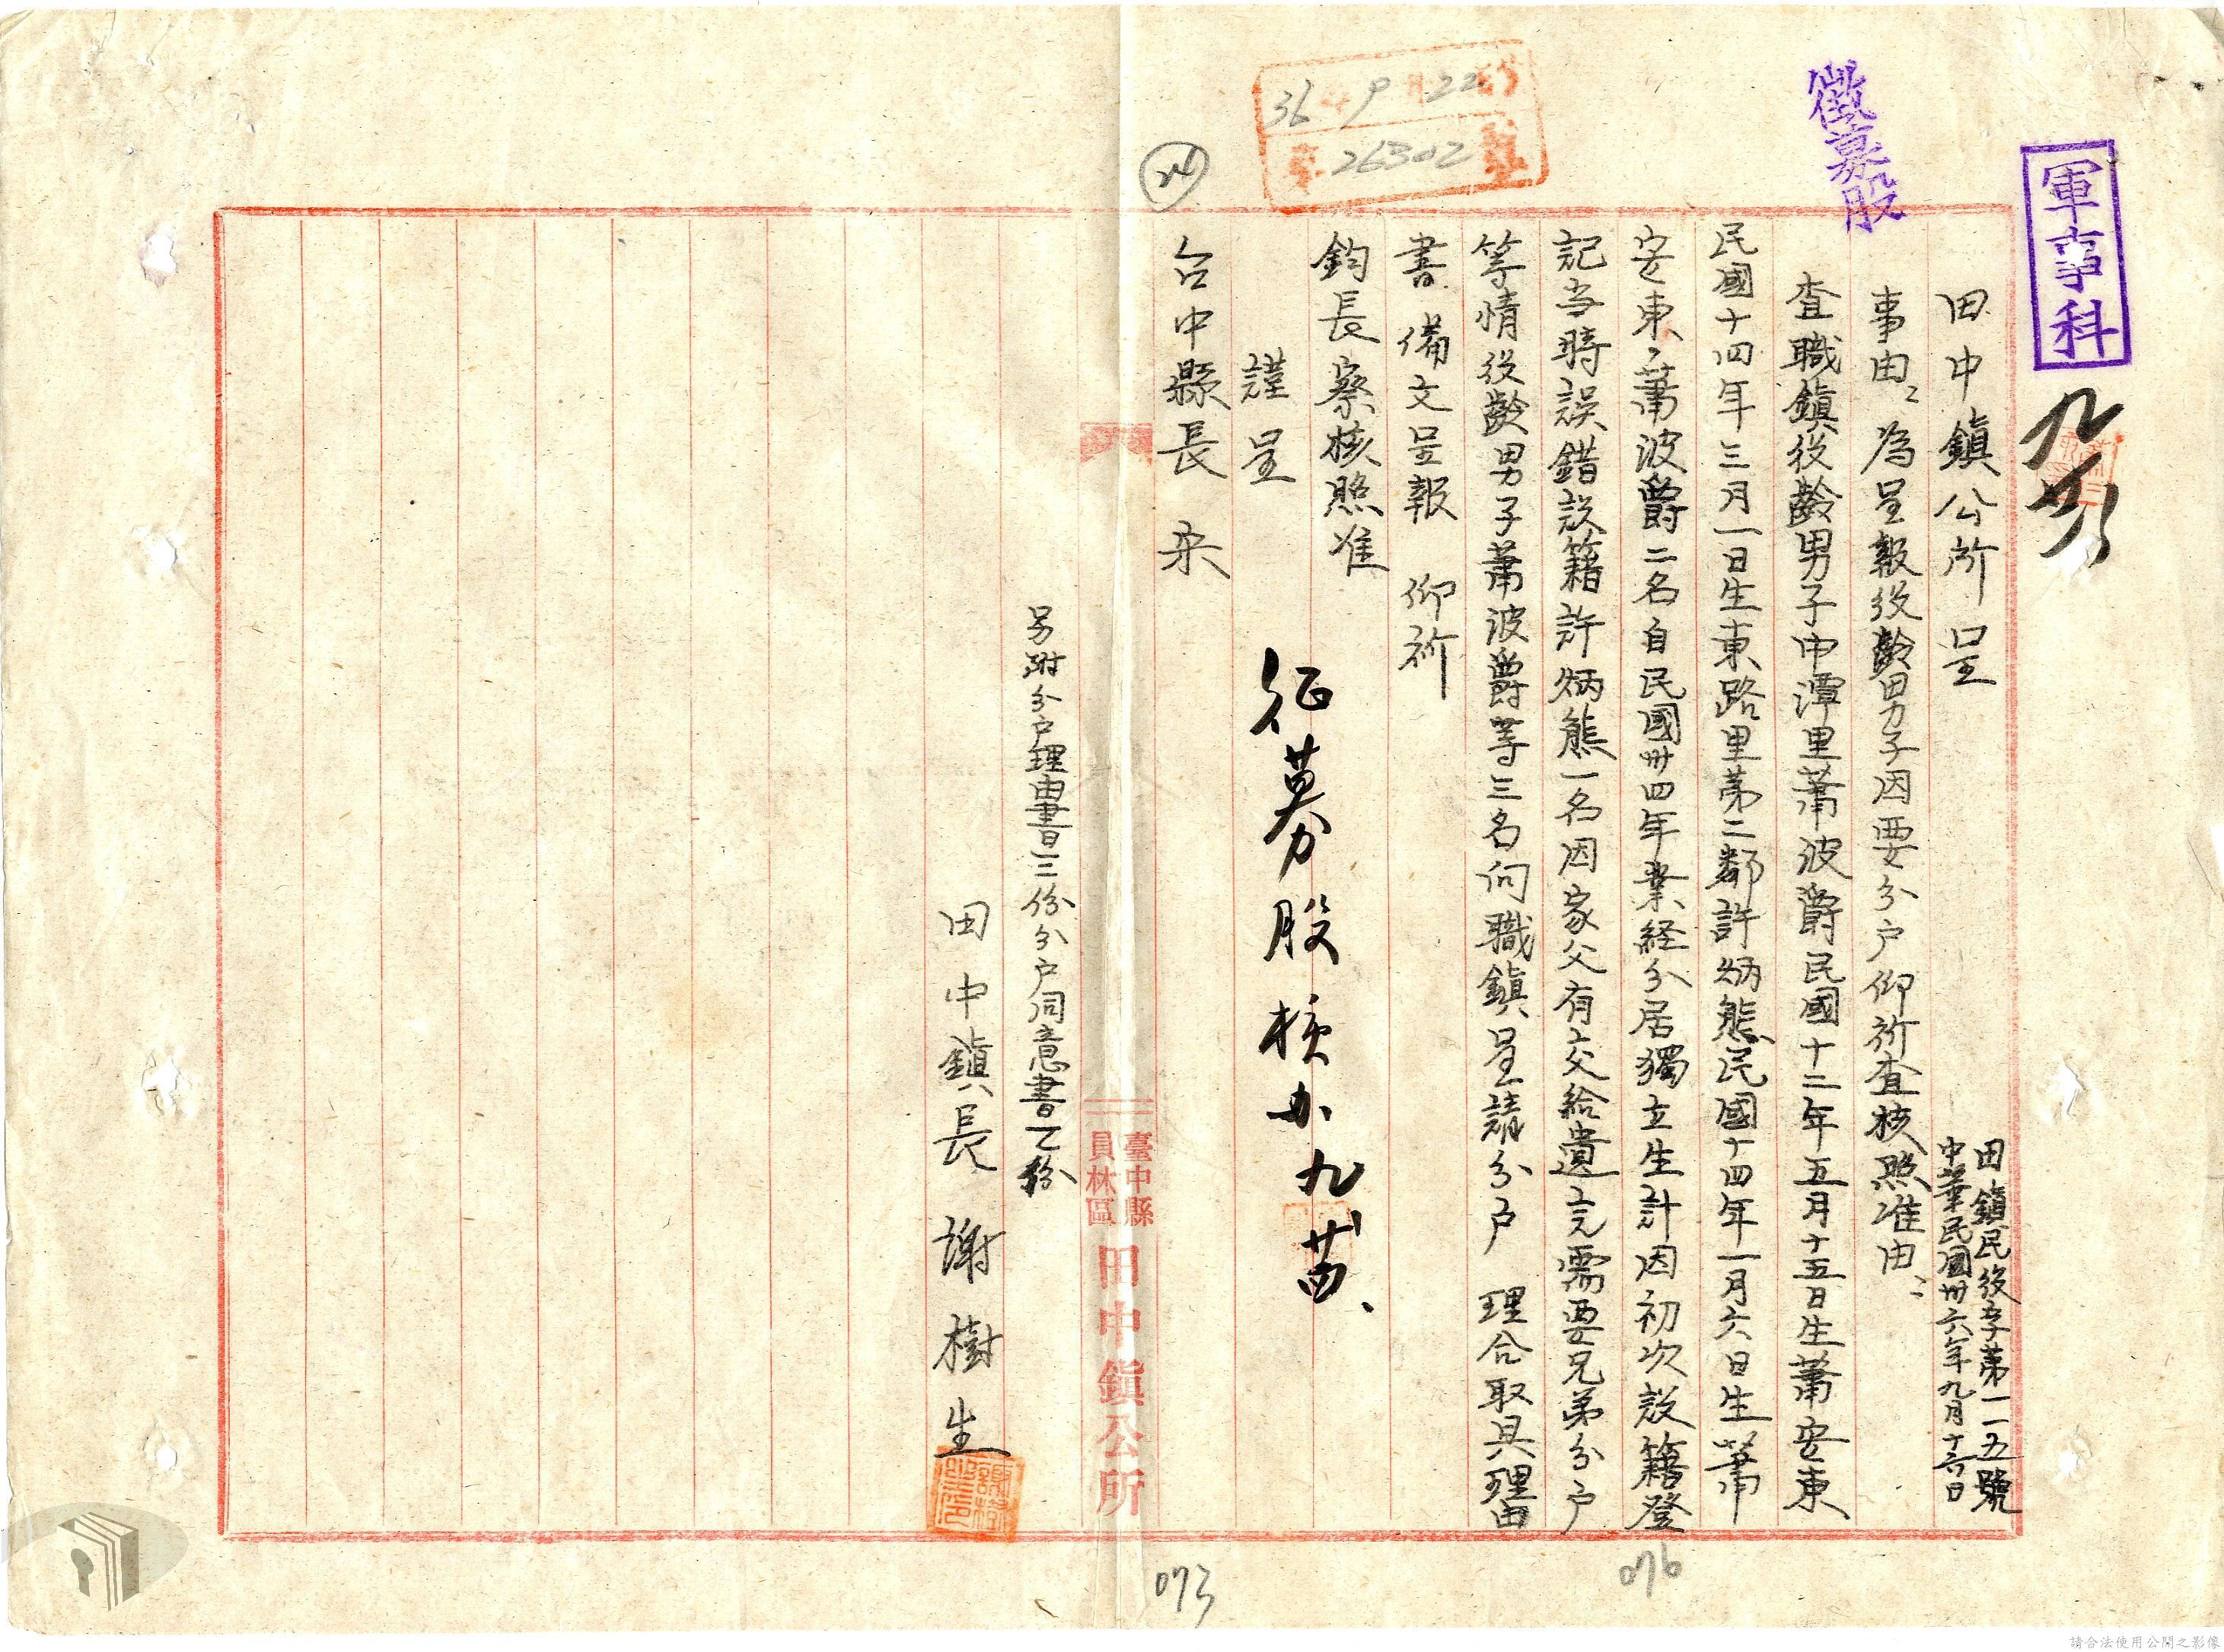 軍事科
徵募股
36 9 22
26302
田中鎮公所呈
田鎮民役字第一一五號
中華民國卅六年九月十六日
事由：為呈報役齡男子因要分户仰祈查核照准由：
查職鎮役齡男子中潭里蕭波爵民國十二年五月十五日生蕭安東
民國十四年三月一日生東路里第二鄰許炳熊民國十四年一月六日生蕭
安東、蕭波爵二名自民國卅四年業経分居獨立生計因初次設籍登
記当時誤錯設籍許炳熊一名因家父有交給遺言需要兄弟分户
等情役齡男子蕭波爵等三名向職鎮呈請分户 理合取具理由
書備文呈報 仰祈
鈞長察核照准
謹呈
台中縣長 宋
征募股核办九廿
臺中縣
員林區
田中鎮公所
另附分户理由書三份分户同意書乙份
田中鎮長 謝樹生
073
076
請合法使用公開之影像